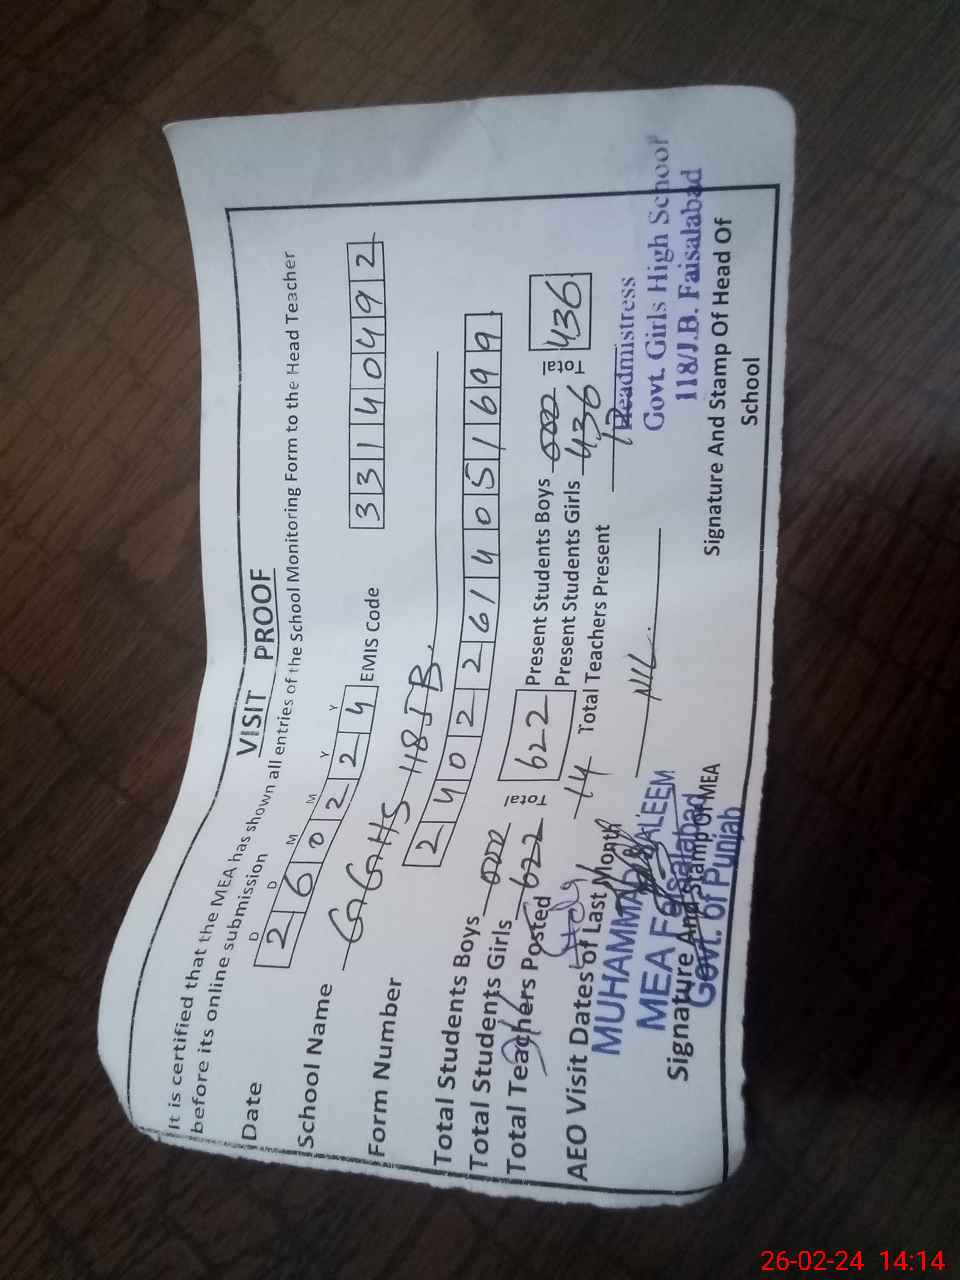 VISIT PROOF
It is certified that the MEA has shown all entries of the School Monitoring Form to the Head Teacher
before its online submission
D D M M Y Y
Date 2 6 0 2 2 4 EMIS Code 3 3 1 4 0 4 9 2
School Name GGHS 118 JB.
Form Number 2 4 0 2 2 6 1 4 0 5 1 6 9 9
Total Students Boys 000 Total 622 Present Students Boys 000 Total 436
Total Students Girls 622 Present Students Girls 436
Total Teachers Posted 14 Total Teachers Present
AEO Visit Dates of Last Month NIL.
MUHAMMAD SALEEM
MEA Faisalabad
Govt. of Punjab
Signature And Stamp Of MEA
Headmistress
Govt. Girls High School
118/J.B. Faisalabad
Signature And Stamp Of Head Of
School
26-02-24 14:14